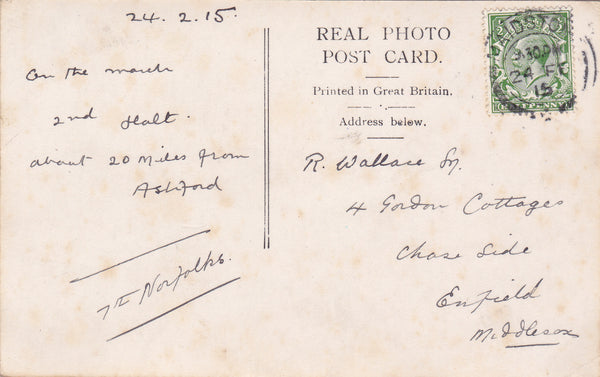 24.2.15.
On the march
2nd Halt.
about 20 Miles from
Ashford
7th Norfolks.
REAL PHOTO
POST CARD.
Printed in Great Britain.
Address below.
R. Wallace
4 Gordon Cottages
Chase Side
Enfield
Middlesex
24 FE
15